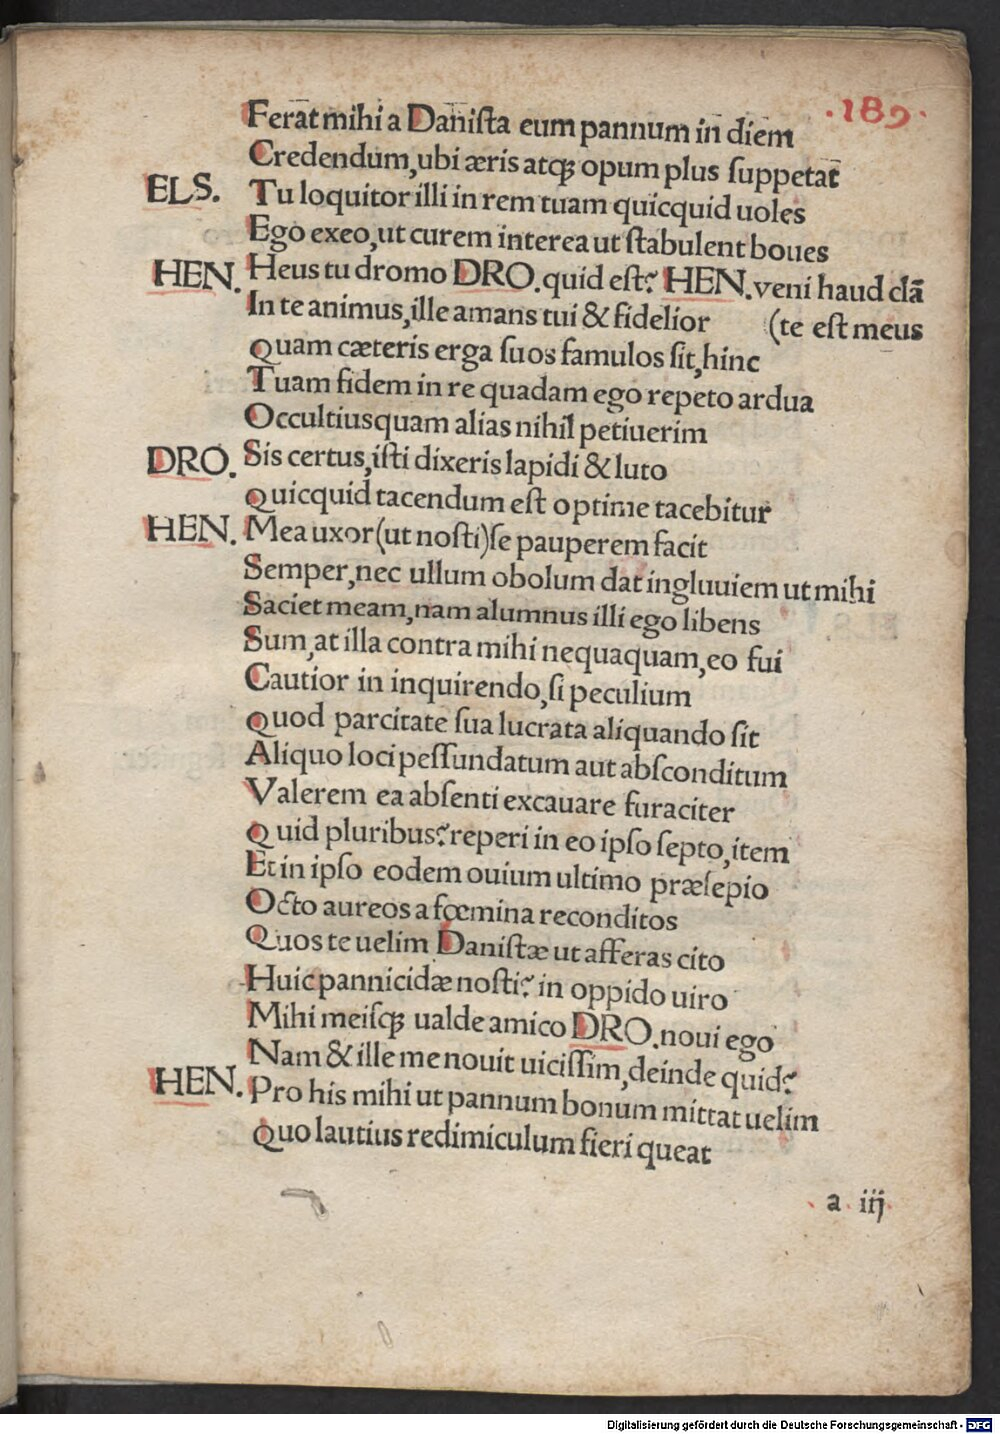 .189.
Ferãt mihi a Danista eum pannum in diem
Credendum,ubi æris atqꝫ opum plus suppetat̄
ELS. Tu loquitor illi in rem tuam quicquid uoles
Ego exeo,ut curem interea ut stabulent boues
HEN. Heus tu dromo DRO.quid est? HEN.veni haud clã
In te animus,ille amans tui & fidelior (te est meus
Quam cæteris erga suos famulos sit,hinc
Tuam fidem in re quadam ego repeto ardua
Occultiusquam alias nihil petiuerim
DRO. Sis certus,isti dixeris lapidi & luto
Quicquid tacendum est optime tacebitur
HEN. Mea uxor(ut nosti)se pauperem facit
Semper,nec ullum obolum dat ingluuiem ut mihi
Saciet meam,nam alumnus illi ego libens
Sum,at illa contra mihi nequaquam,eo fui
Cautior in inquirendo,si peculium
Quod parcitate sua lucrata aliquando sit
Aliquo loci pessundatum aut absconditum
Valerem ea absenti excauare furaciter
Quid pluribus?reperi in eo ipso septo,item
Et in ipso eodem ouium ultimo præsepio
Octo aureos a fœmina reconditos
Quos te uelim Danistæ ut afferas cito
Huic pannicidæ nosti? in oppido uiro
Mihi meisqꝫ ualde amico DRO.noui ego
Nam & ille me nouit uicissim,deinde quid?
HEN. Pro his mihi ut pannum bonum mittat uelim
Quo lautius redimiculum fieri queat
a iij
Digitalisierung gefördert durch die Deutsche Forschungsgemeinschaft - DFG